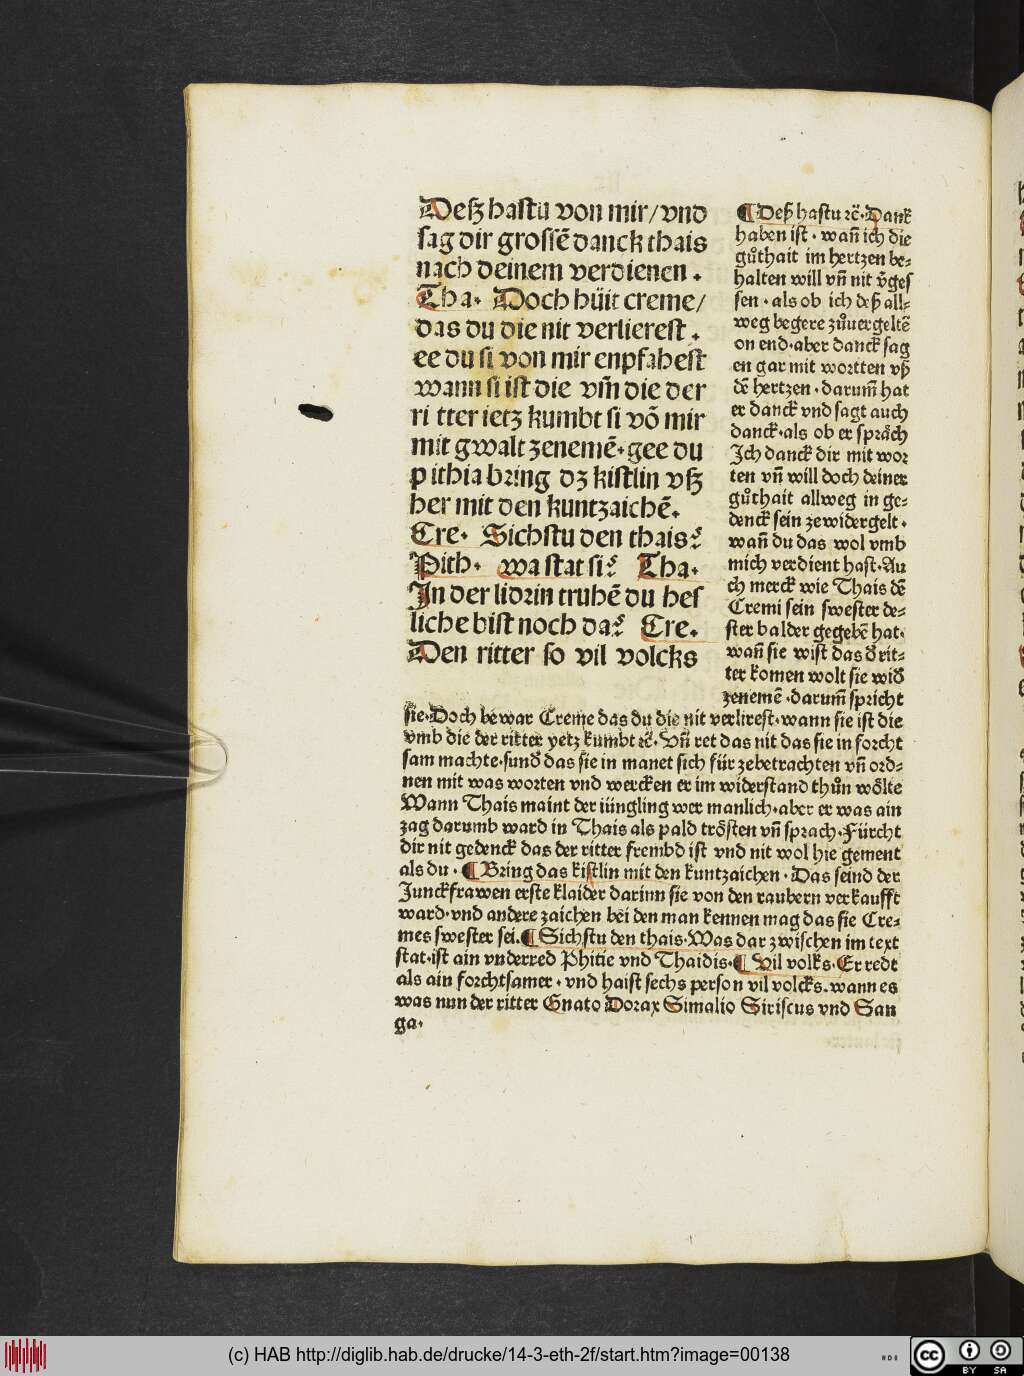 Deſz haſtu von mir/ vnd
ſag dir groſſē danck thais
nach deinem verdienen .
Tha. Doch hüit creme/
das du die nit verliereſt .
ee du ſi von mir enpfaheſt
wann ſi iſt die vm̄ die der
ri tter ietz kumbt ſi vō mir
mit gwalt zenemē. gee du
pithia bring dz kiſtlin vſz
her mit den kuntzaichē.
Cre. Sichſtu den thais?
Pith. wa ſtat ſi? Tha.
In der lidrin truhē du heſ
liche biſt noch da? Cre.
Den ritter ſo vil volcks
¶ Deß haſtu ꝛc̄. Dank
haben iſt . wañ ich die
gůthait im hertzen be⸗
halten will vñ nit v̄geſ
ſen . als ob ich deß all⸗
weg begere zůuergeltē
on end. aber danck ſag
en gar mit wortten vß
dē hertzen . darum̄ hat
er danck vnd ſagt auch
danck. als ob er ſpräch
Ich danck dir mit wor
ten vñ will doch deiner
gůthait allweg in ge⸗
denck ſein ze widergelt .
wañ du das wol vmb
mich verdient haſt. Au
ch merck wie Thais dē
Cremi ſein ſweſter de⸗
ſter balder gegebē hat.
wañ ſie wiſt das d̄ rit⸗
ter komen wolt ſie wid̄
zenemē . darum̄ ſpricht
ſie. Doch bewar Creme das du die nit verlireſt. wann ſie iſt die
vmb die der ritter yetz kumbt ꝛc̄. Vñ ret das nit das ſie in forcht
ſam machte. ſund̄ das ſie in manet ſich für zebetrachten vñ ord⸗
nen mit was worten vnd wercken er im widerſtand thůn wölte
Wann Thais maint der iüngling wer manlich. aber er was ain
zag darumb ward in Thais als pald tröſten vñ ſprach. Fürcht
dir nit gedenck das der ritter frembd iſt vnd nit wol hie gement
als du . ¶ Bring das kiſtlin mit den kuntzaichen . Das ſeind der
Junckfrawen erſte klaider darinn ſie von den raubern verkaufft
ward. vnd andere zaichen bei den man kennen mag das ſie Cre⸗
mes ſweſter ſei. ¶ Sichſtu den thais. Was dar zwiſchen im text
ſtat. iſt ain vnderred Phitie vnd Thaidis. ¶ Vil volks. Er redt
als ain forchtſamer . vnd haiſt ſechs perſon vil volcks. wann es
was nun der ritter Gnato Dorax Simalio Siriſcus vnd San
ga.
(c) HAB http://diglib.hab.de/drucke/14-3-eth-2f/start.htm?image=00138
HAB
cc
BY SA